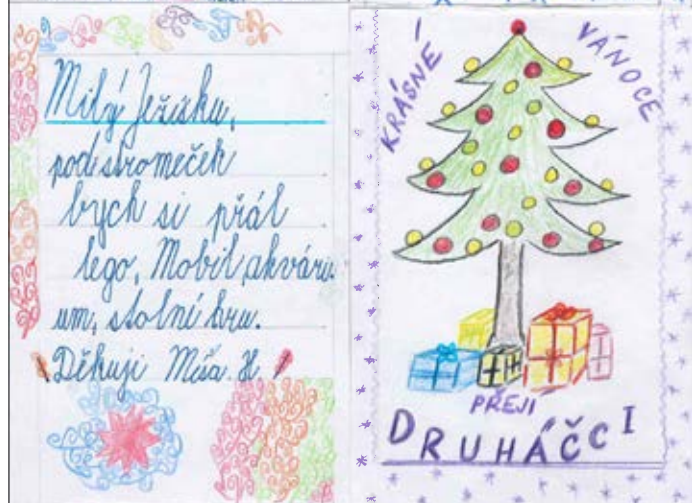 Milý Ježíšku,
pod stromeček
bych si přál
lego, Mobil, akvári-
um, stolní hru.
Děkuji Míša H
KRÁSNÉ
VÁNOCE
PŘEJÍ
DRUHÁČCI